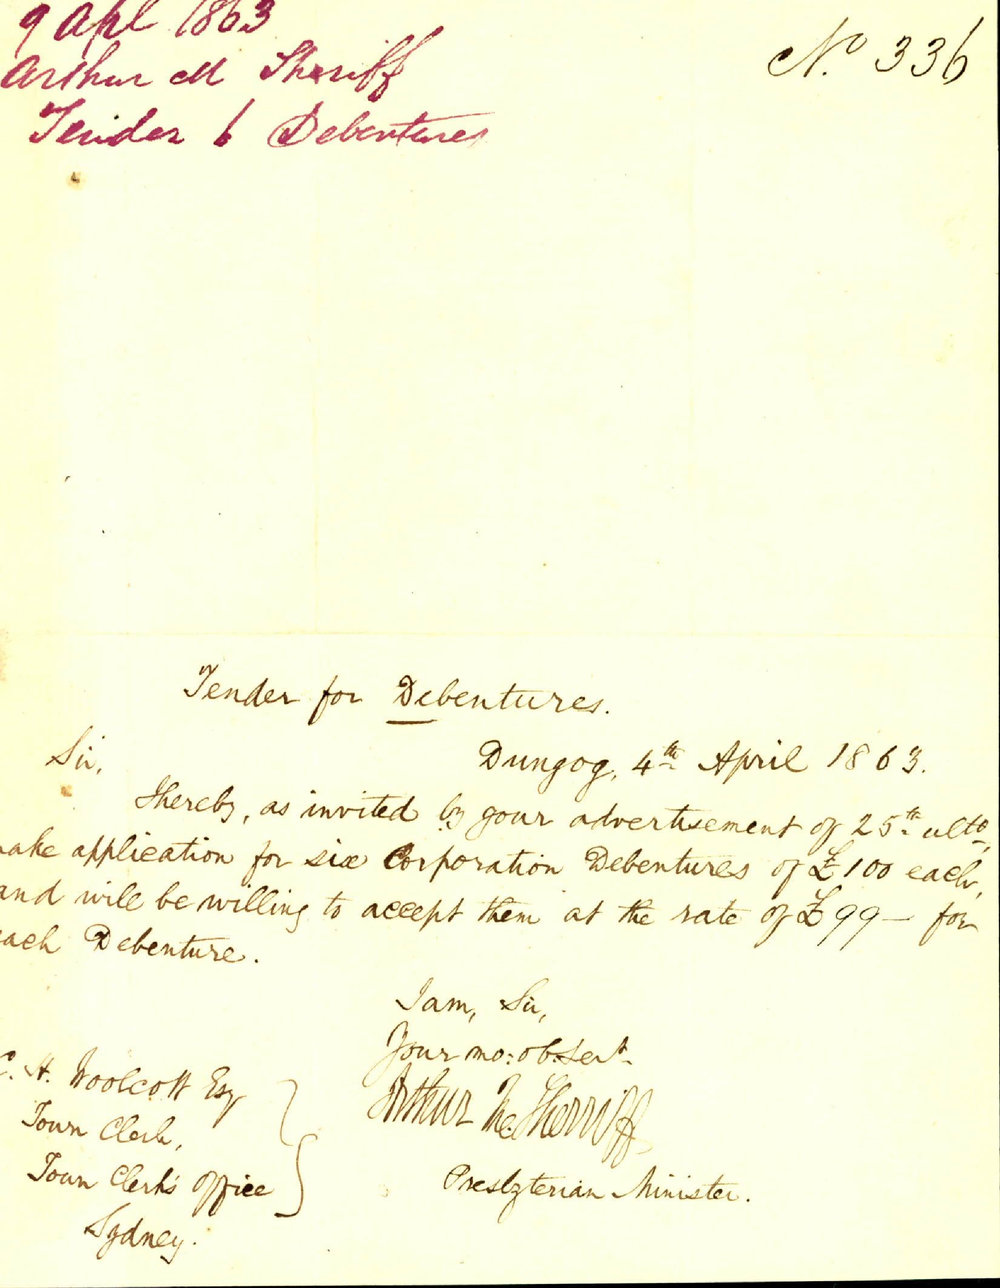 9 Apl 1863
Arthur M Sheriff
Tender 6 Debentures
No. 336
Tender for Debentures.
Sir,
Dungog, 4th April 1863.
I hereby, as invited by your advertisement of 25th ulto,
make application for six Corporation Debentures of £100 each,
and will be willing to accept them at the rate of £99— for
each Debenture.
I am, Sir,
Your mo: ob. Servt.
Arthur McSherriff
Presbyterian Minister.
C. H. Woolcott Esq
Town Clerk,
Town Clerk's Office
Sydney.